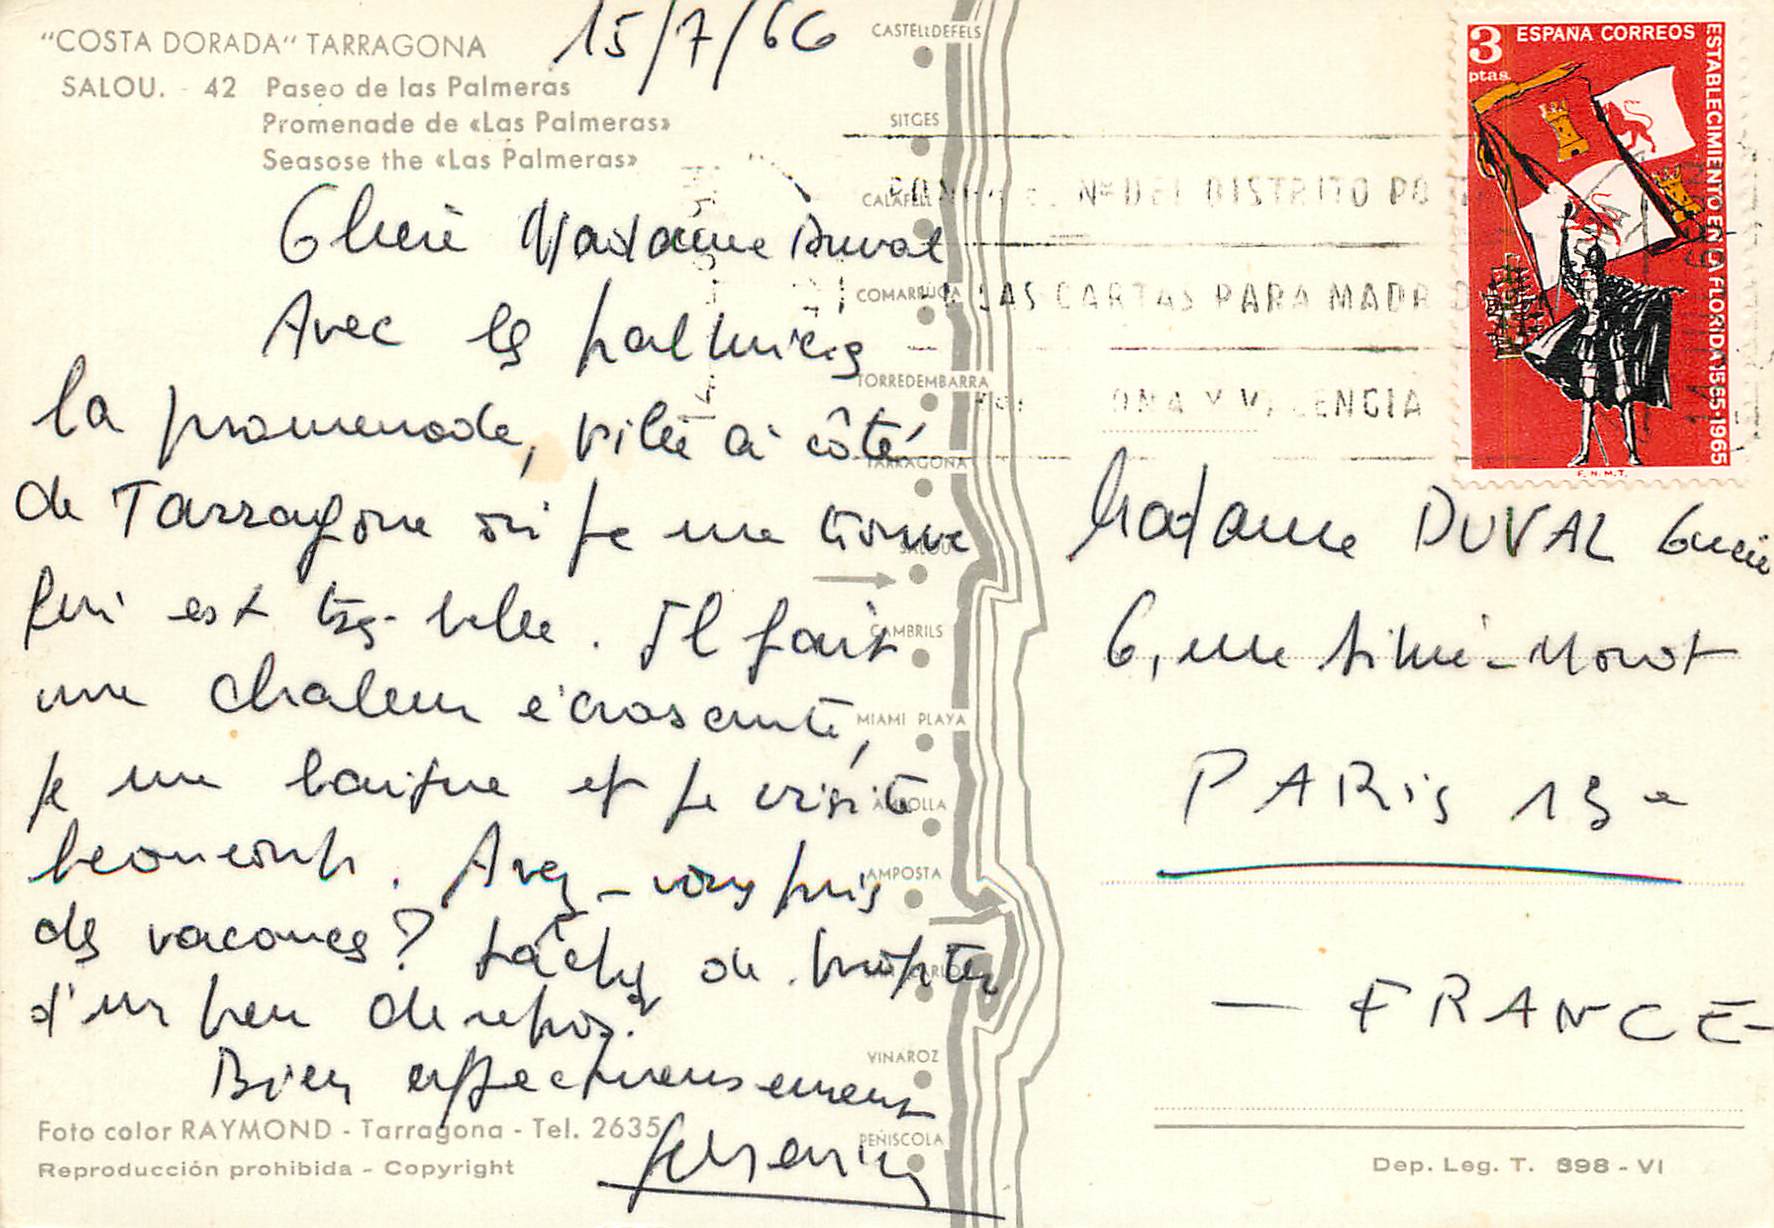 "COSTA DORADA" TARRAGONA
SALOU. - 42 Paseo de las Palmeras
Promenade de «Las Palmeras»
Seasose the «Las Palmeras»
15/7/66
Chère Madame Duval
Avec les palmiers
la promenade, ville à côté
de Tarragone où je me trouve
qui est très belle. Il fait
une chaleur écrasante,
je me baigne et je visite
beaucoup. Avez-vous pris
des vacances? Tâchez de profiter
d'un peu de repos.
Bien affectueusement
Foto color RAYMOND - Tarragona - Tel. 2635
Reproducción prohibida - Copyright
CASTELLDEFELS
SITGES
CALAFELL
COMARRUGA
TORREDEMBARRA
TARRAGONA
SALOU
CAMBRILS
MIAMI PLAYA
AMPOLLA
AMPOSTA
SAN CARLOS
VINAROZ
PEÑISCOLA
3 ptas.
ESPAÑA CORREOS
ESTABLECIMIENTO EN LA FLORIDA 1565-1965
F.N.M.T.
Nº DEL DISTRITO PO
LAS CARTAS PARA MADR D
ONA Y V LENCIA
Madame DUVAL
6, rue Aimé-Morot
PARIS 13e
- FRANCE -
Dep. Leg. T. 898 - VI